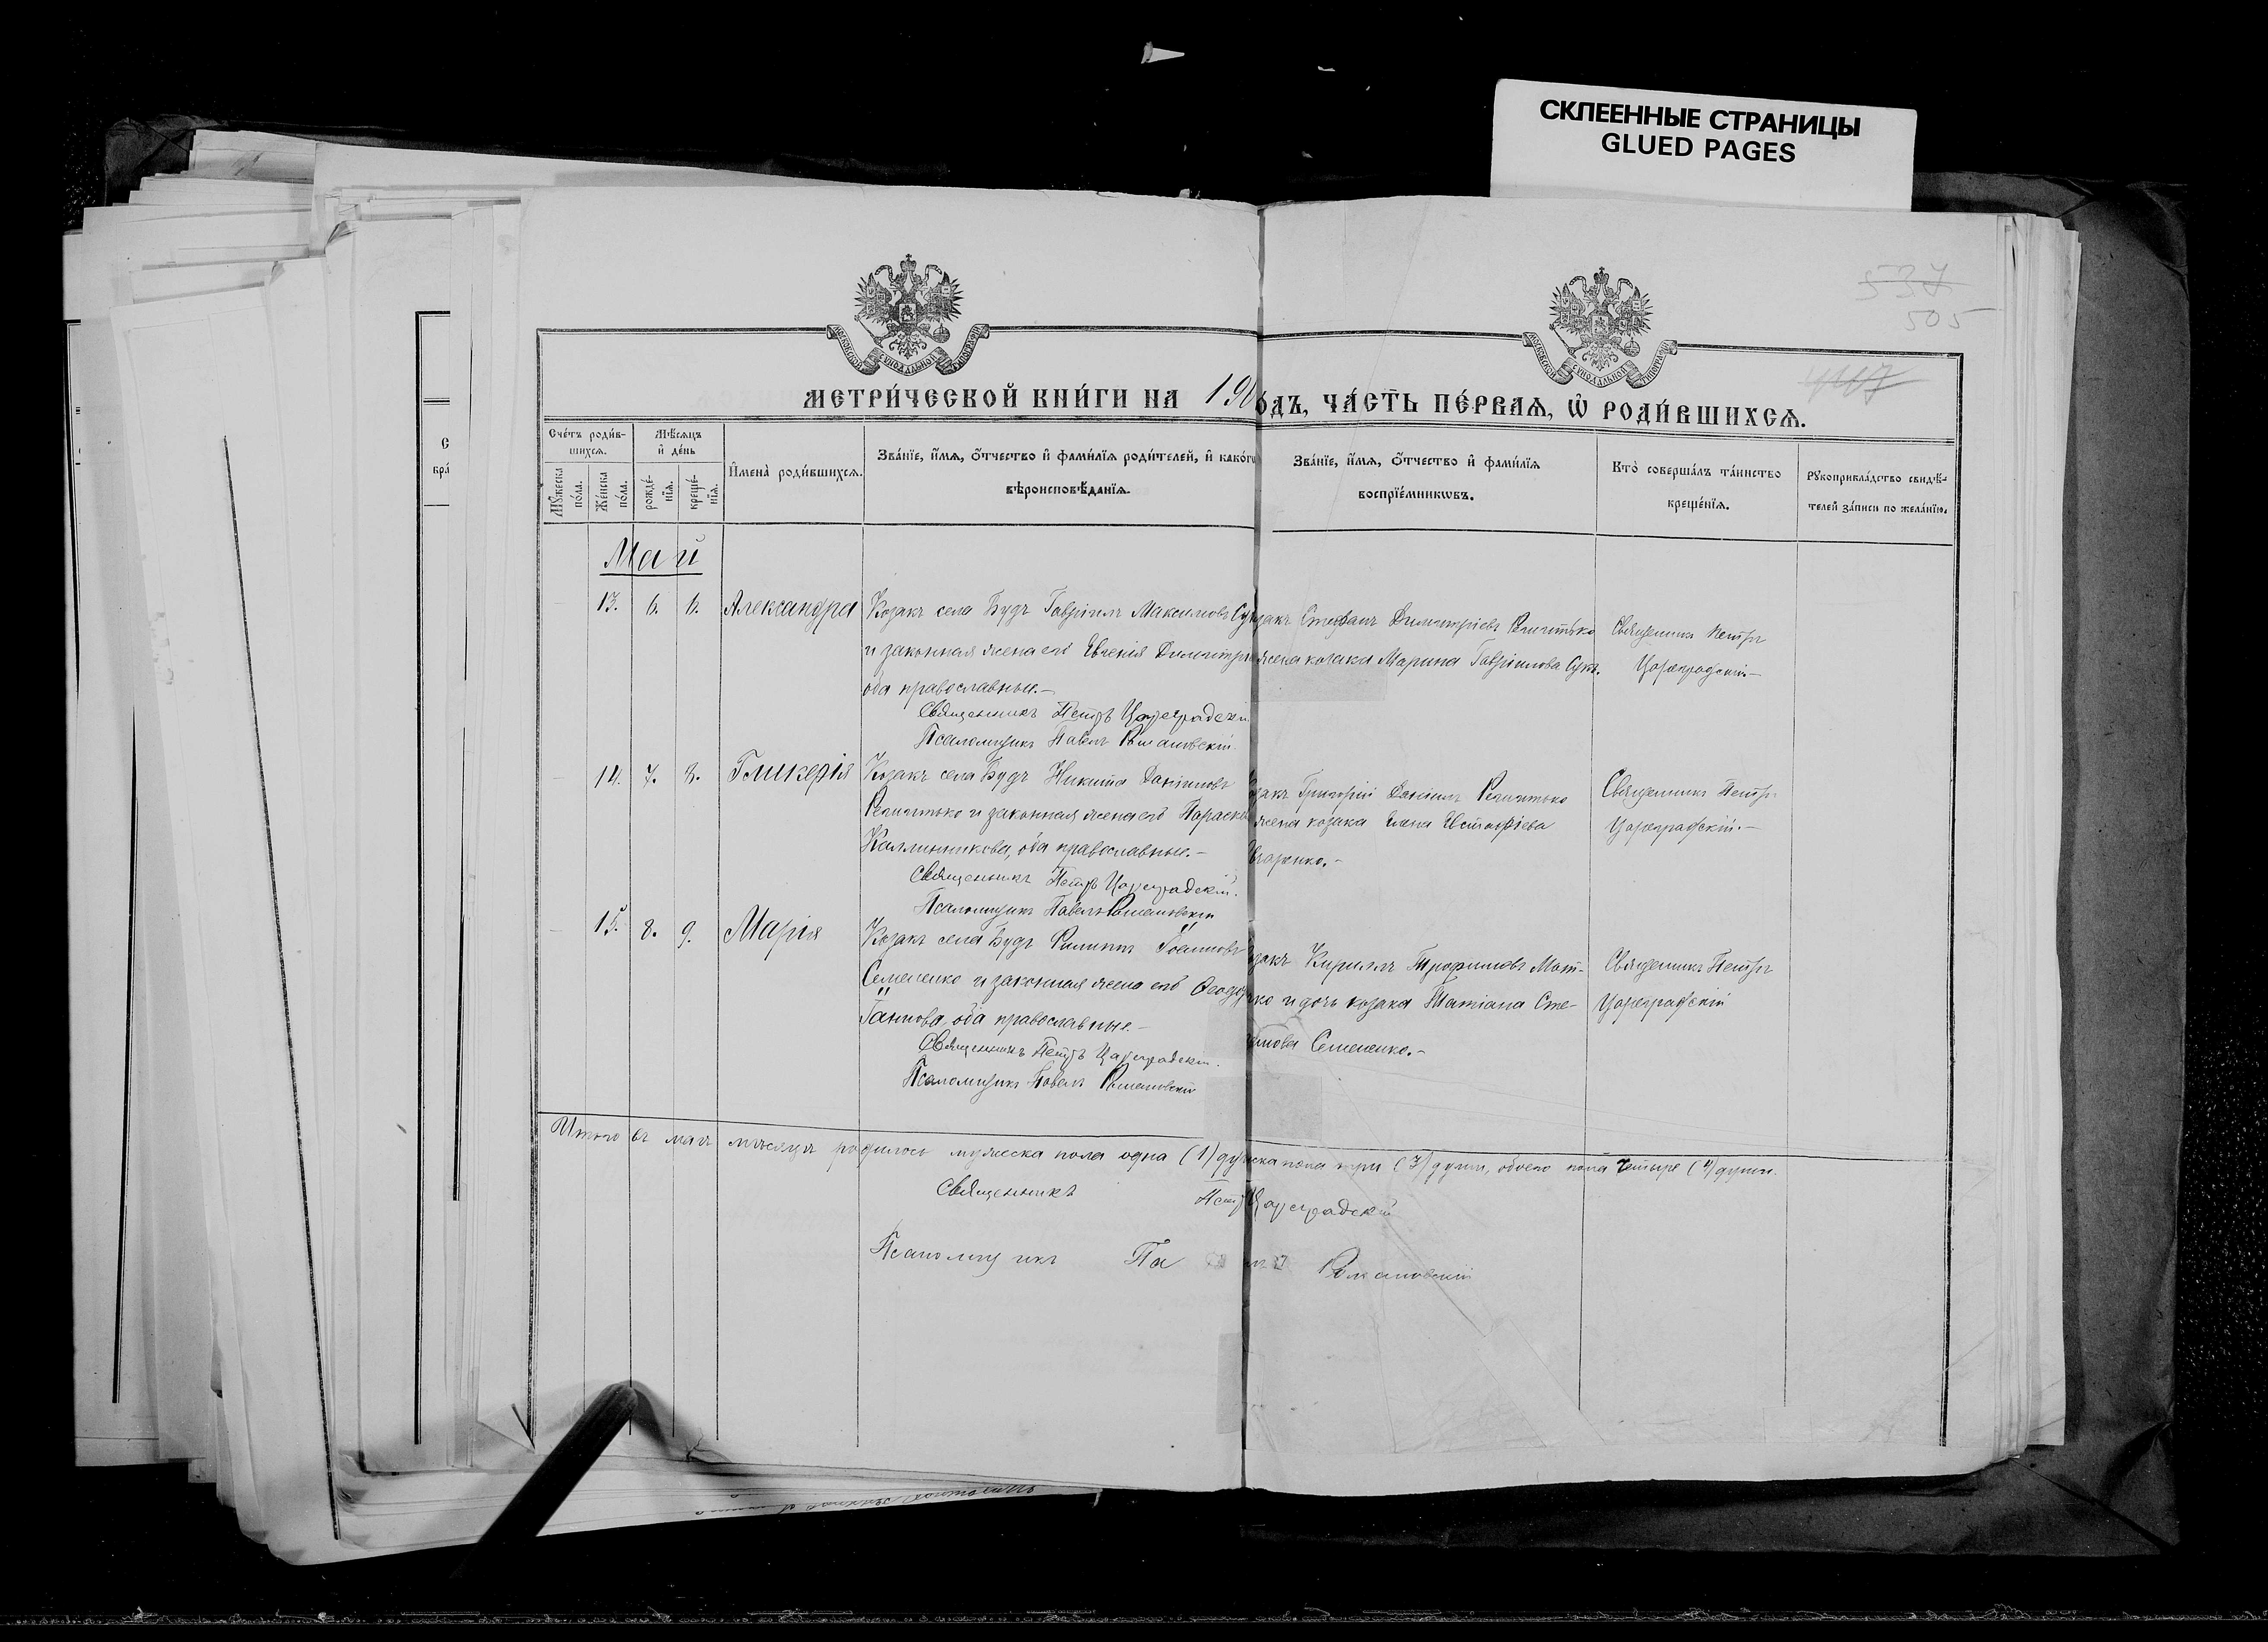 СКЛЕЕННЫЕ СТРАНИЦЫ
GLUED PAGES
537
505
МОСКОВСКОЙ СѴНОДАЛЬНОЙ ТИПОГРАФІИ
МОСКОВСКОЙ СѴНОДАЛЬНОЙ ТИПОГРАФІИ
МЕТРИ́ЧЕСКОЙ КНИ́ГИ НА 190
О́ДЪ, ЧА́СТЬ ПЕ́РВАЯ, Ѡ҆ РОДИ́ВШИХСѦ.
Сче́тъ роди́в-
шихсѧ.
Мѣ́сѧцъ
и҆ де́нь
Мꙋ́жеска по́ла.
Же́нска по́ла.
рожде́-нїѧ.
креще́-нїѧ.
И҆мена̀ роди́вшихсѧ.
Зва́нїе, и҆́мѧ, ѻ҆́тчество и҆ фами́лїѧ роди́телей, и҆ како́г
вѣроисповѣ́данїѧ.
Зва́нїе, и҆́мѧ, ѻ҆́тчество и҆ фами́лїѧ
воспрїе́мникѡвъ.
Кто̀ соверша́лъ та́инство
креще́нїѧ.
Рꙋкоприкла́дство свидѣ́-
телей за́писи по жела́нїю.
Май
13. 6. 6. Александра
Козакъ села Будъ Гавріилъ Максимовъ
и законная жена его Евгенія Димитрі
оба православные.-
Священникъ Петръ Цареградскій
Псаломщикъ Павелъ Романовскій
закъ Стефанъ Димитріевъ
жена козака Марина Гавріилова
Священникъ Петръ
Цареградскій.-
14. 7. 8. Гликерія
Козакъ села Будъ Никита Даніиловъ
и законная жена его Параске
Каллинникова, оба православные.-
Священникъ Петръ Цареградскій.
Псаломщикъ Павелъ Романовскій
закъ Григорій Даніилъ
жена козака Евстафіева
Священникъ Петръ
Цареградскій.-
15. 8. 9. Марія
Козакъ села Будъ Филиппъ Іоанновъ
Семененко и законная жена его Ѳеодо
Іаннова, оба православные.-
Священникъ Петръ Цареградскій.
Псаломщикъ Павелъ Романовскій
закъ Кириллъ Трофимовъ Мат-
ко и дочь козака Татіана Сте-
Семененко.-
Священникъ Петръ
Цареградскій
Итого въ маѣ мѣсяцѣ родилось мужеска пола одна (1) ду
ска пола три (3) души, обоего пола четыре (4) души.
Священникъ Петръ Цареградскій
Псаломщикъ Па Романовскій